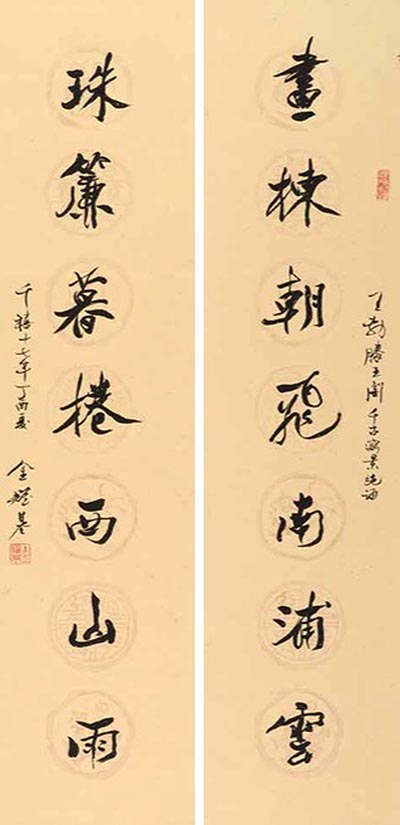 畫棟朝飛南浦雲
王勃滕王閣千古寫景絕
珠簾暮捲西山雨
千禧十七年丁酉夏
金耀基